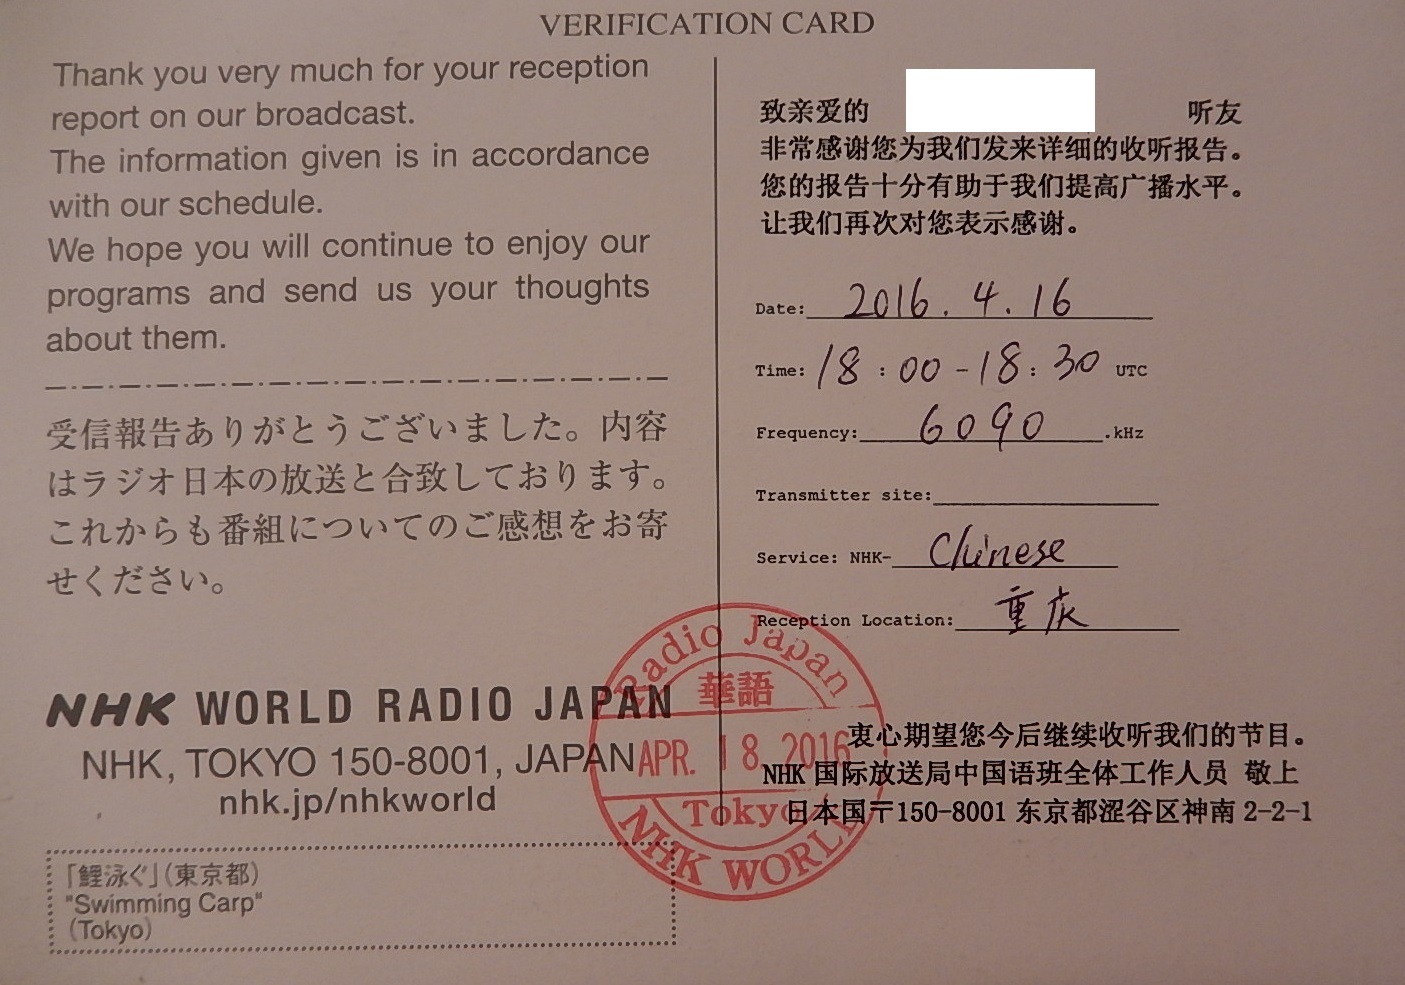 VERIFICATION CARD
Thank you very much for your reception
report on our broadcast.
The information given is in accordance
with our schedule.
We hope you will continue to enjoy our
programs and send us your thoughts
about them.
受信報告ありがとうございました。内容
はラジオ日本の放送と合致しております。
これからも番組についてのご感想をお寄
せください。
NHK WORLD RADIO JAPAN
NHK, TOKYO 150-8001, JAPAN
nhk.jp/nhkworld
「鯉泳ぐ」（東京都）
"Swimming Carp"
（Tokyo）
致亲爱的 听友
非常感谢您为我们发来详细的收听报告。
您的报告十分有助于我们提高广播水平。
让我们再次对您表示感谢。
Date: 2016.4.16
Time: 18:00-18:30 UTC
Frequency: 6090 .kHz
Transmitter site:
Service: NHK- Chinese
Reception Location: 重庆
Radio Japan
華語
APR. 18. 2016
Tokyo
NHK WORLD
衷心期望您今后继续收听我们的节目。
NHK 国际放送局中国语班全体工作人员 敬上
日本国〒150-8001 东京都涩谷区神南 2-2-1